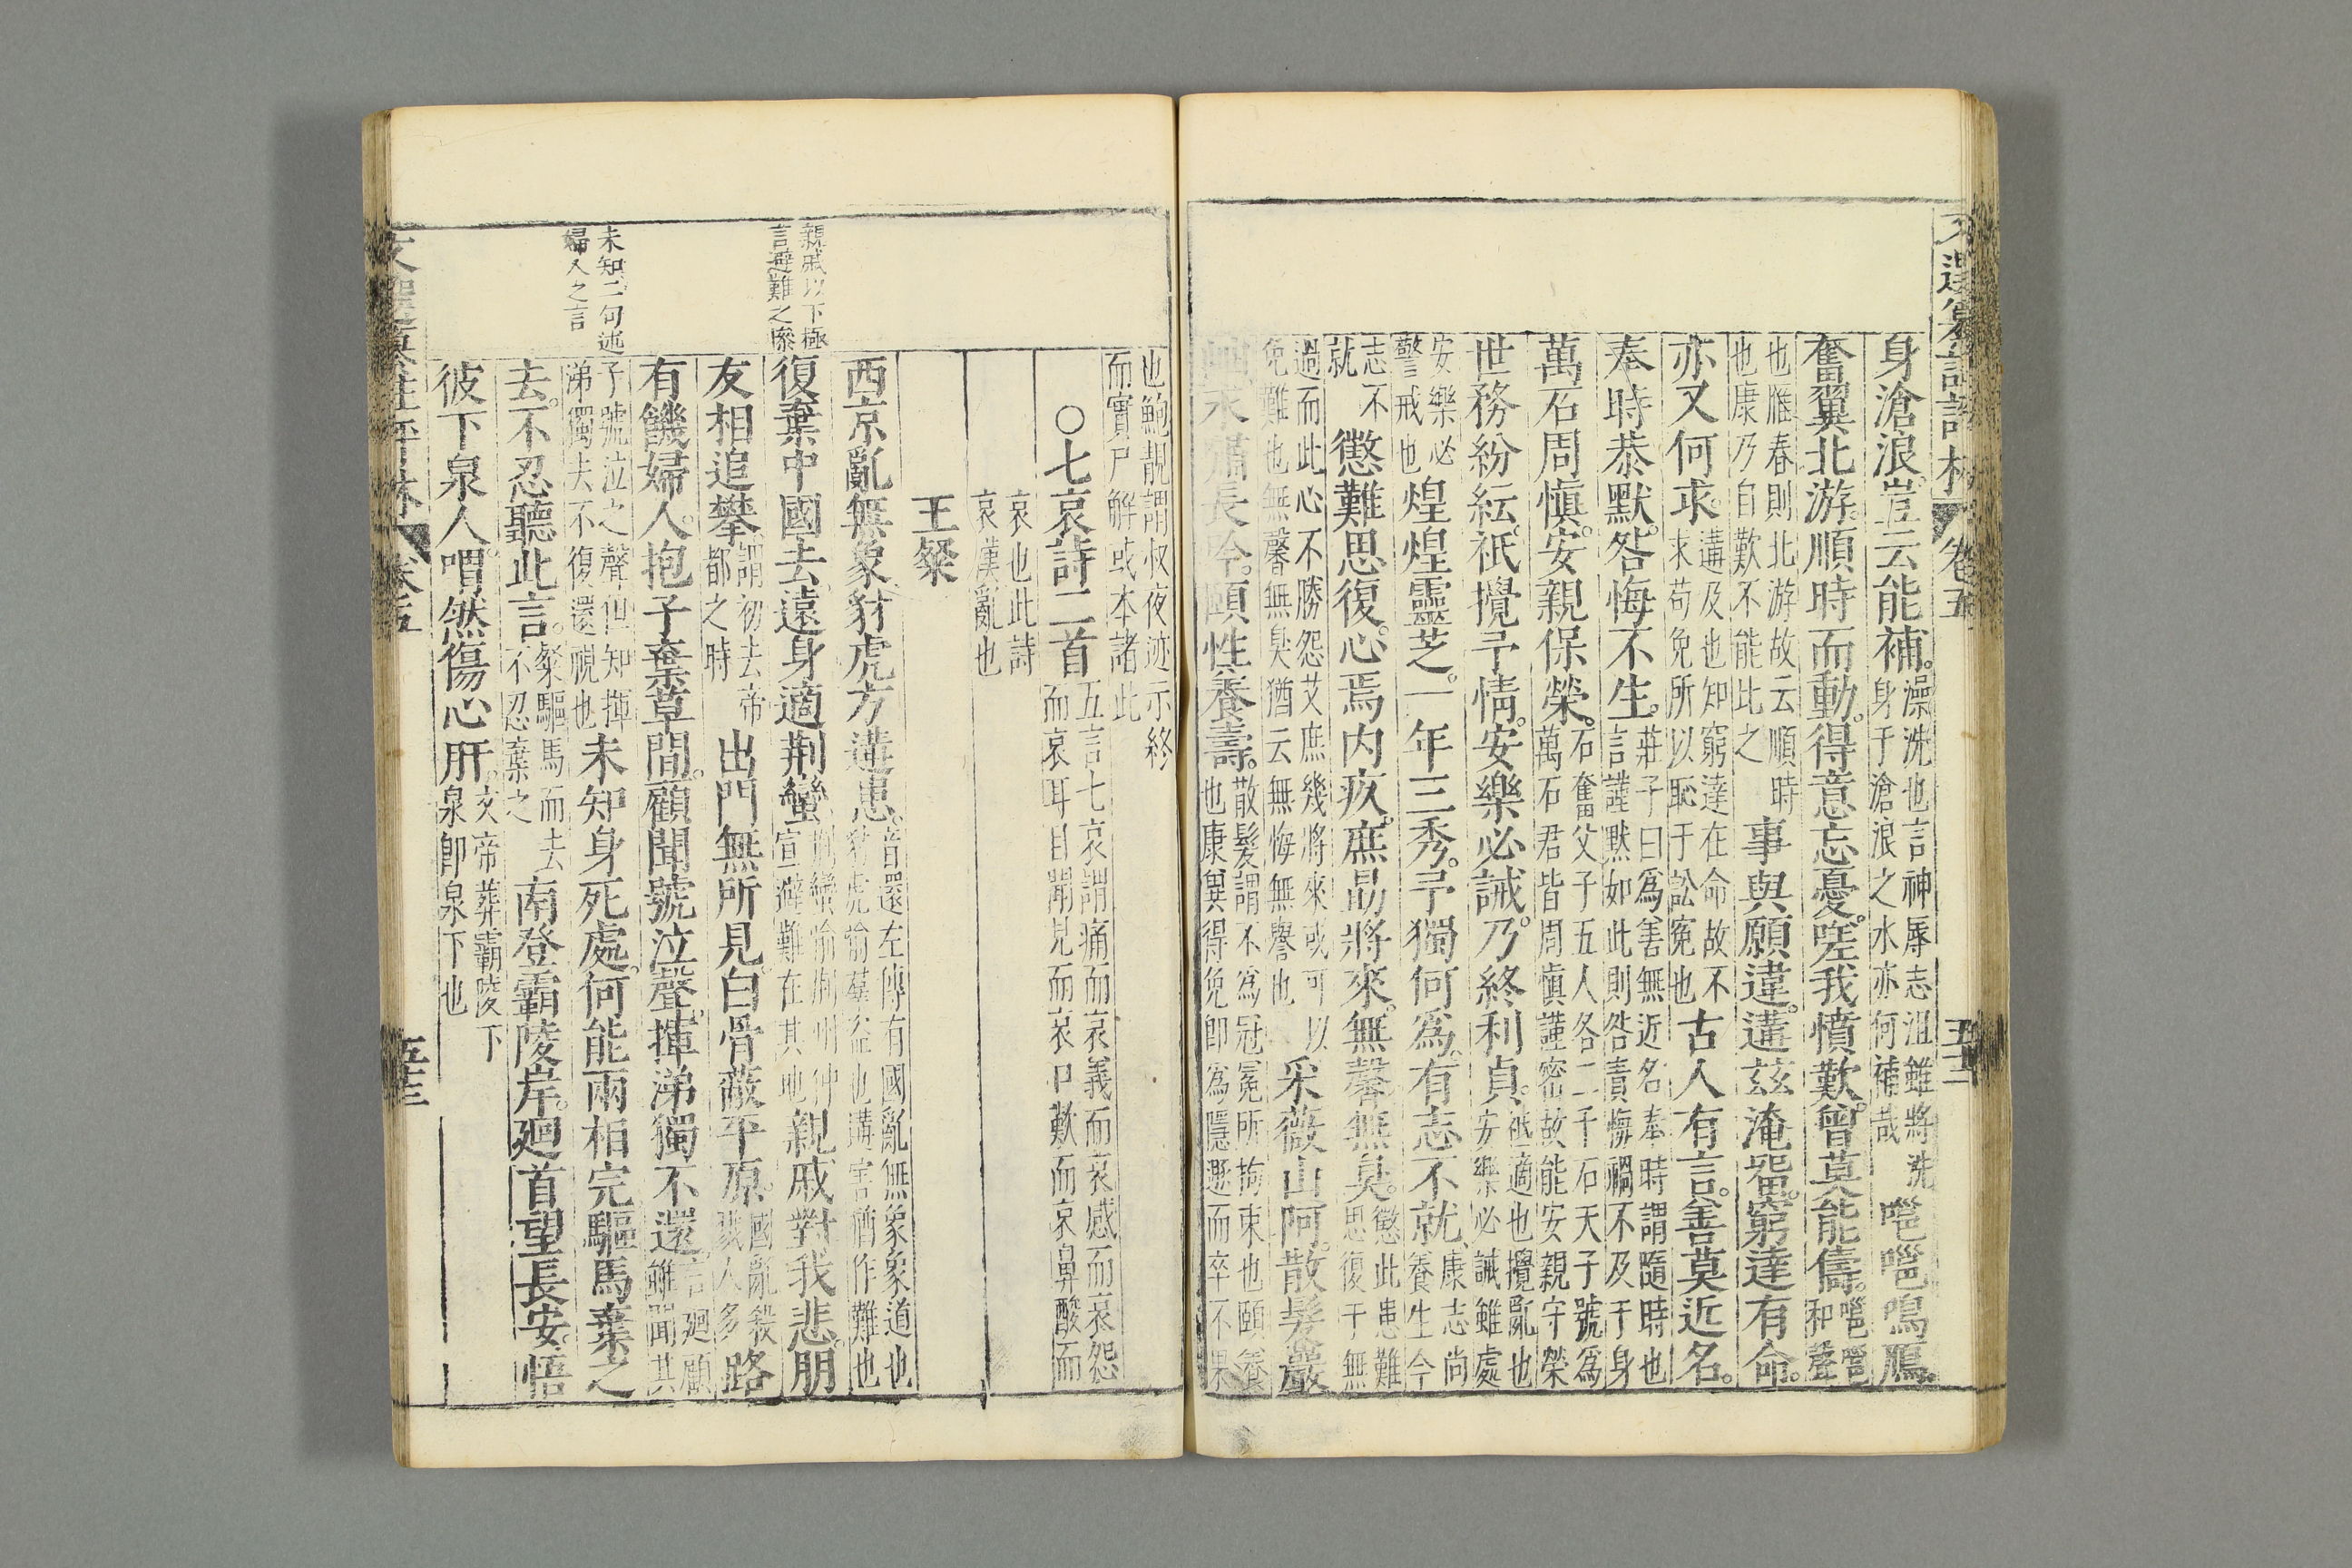 卷五
五十二
身滄浪豈云能補。澡洗也言神辱志沮雖將洗身于滄浪之水亦何補哉嗈嗈鳴鴈。
奮翼北游。順時而動。得意忘憂。嗟我憤歎。曾莫能儔。嗈嗈和聲
也鴈春則北游故云順時也康乃自歎不能此之事與願違。遘玆淹留。窮達有命。
亦又何求。遘及也知窮達在命故不求苟免所以恥于訟寃也古人有言。善莫近名。
奉時恭默。咎悔不生。莊子曰爲善無近名奉時謂隨時也言謹默如此則咎責悔禍不及于身
萬石周愼。安親保榮。石奮父子五人各二千石天子號爲萬石君皆周愼謹密故能安親守榮
世務紛紜。祇攪予情。安樂必誡。乃終利貞。祇適也攪亂也安樂必誡雖處
安樂必警戒也煌煌靈芝。一年三秀。予獨何爲。有志不就。康志尚養生今
志不就懲難思復。心焉内疚。庶勗將來。無馨無臭。懲此患難思復于無
過而此心不勝怨艾庶幾將來或可以免難也無馨無臭猶云無悔無譽也采薇山阿。散髮巖
岫永嘯長吟。頤性養壽。散髮謂不爲冠冕所拘束也頤養也康異得免卽爲隱遯而卒不果
也鮑靚謂叔夜迹示終而實尸解或本諸此
○七哀詩二首五言七哀謂痛而哀義而哀感而哀怨而哀耳目聞見而哀口歎而哀鼻酸而
哀也此詩哀漢亂也
王粲
西京亂無象豺虎方遘患。音還左傳有國亂無象象道也豺虎喻羣盗也遘害猶作難也
復棄中國去遠身適荆蠻荆蠻喻荆州仲宣避難在其地親戚對我悲。朋
友相追攀謂初去帝都之時出門無所見白骨蔽平原。國亂殺戮人多路
有饑婦人。抱子棄草間。顧聞號泣聲。揮涕獨不還。言廻顧雖聞其
子號泣之聲但知揮涕獨去不復還視也未知身死處。何能兩相完驅馬棄之
去。不忍聽此言。粲驅馬而去不忍棄之南登霸陵岸。廻首望長安。悟
彼下泉人。喟然傷心肝。文帝葬霸陵下泉卽泉下也
親戚以下極言避難之慘
未知二句述婦人之言
卷五
五十三